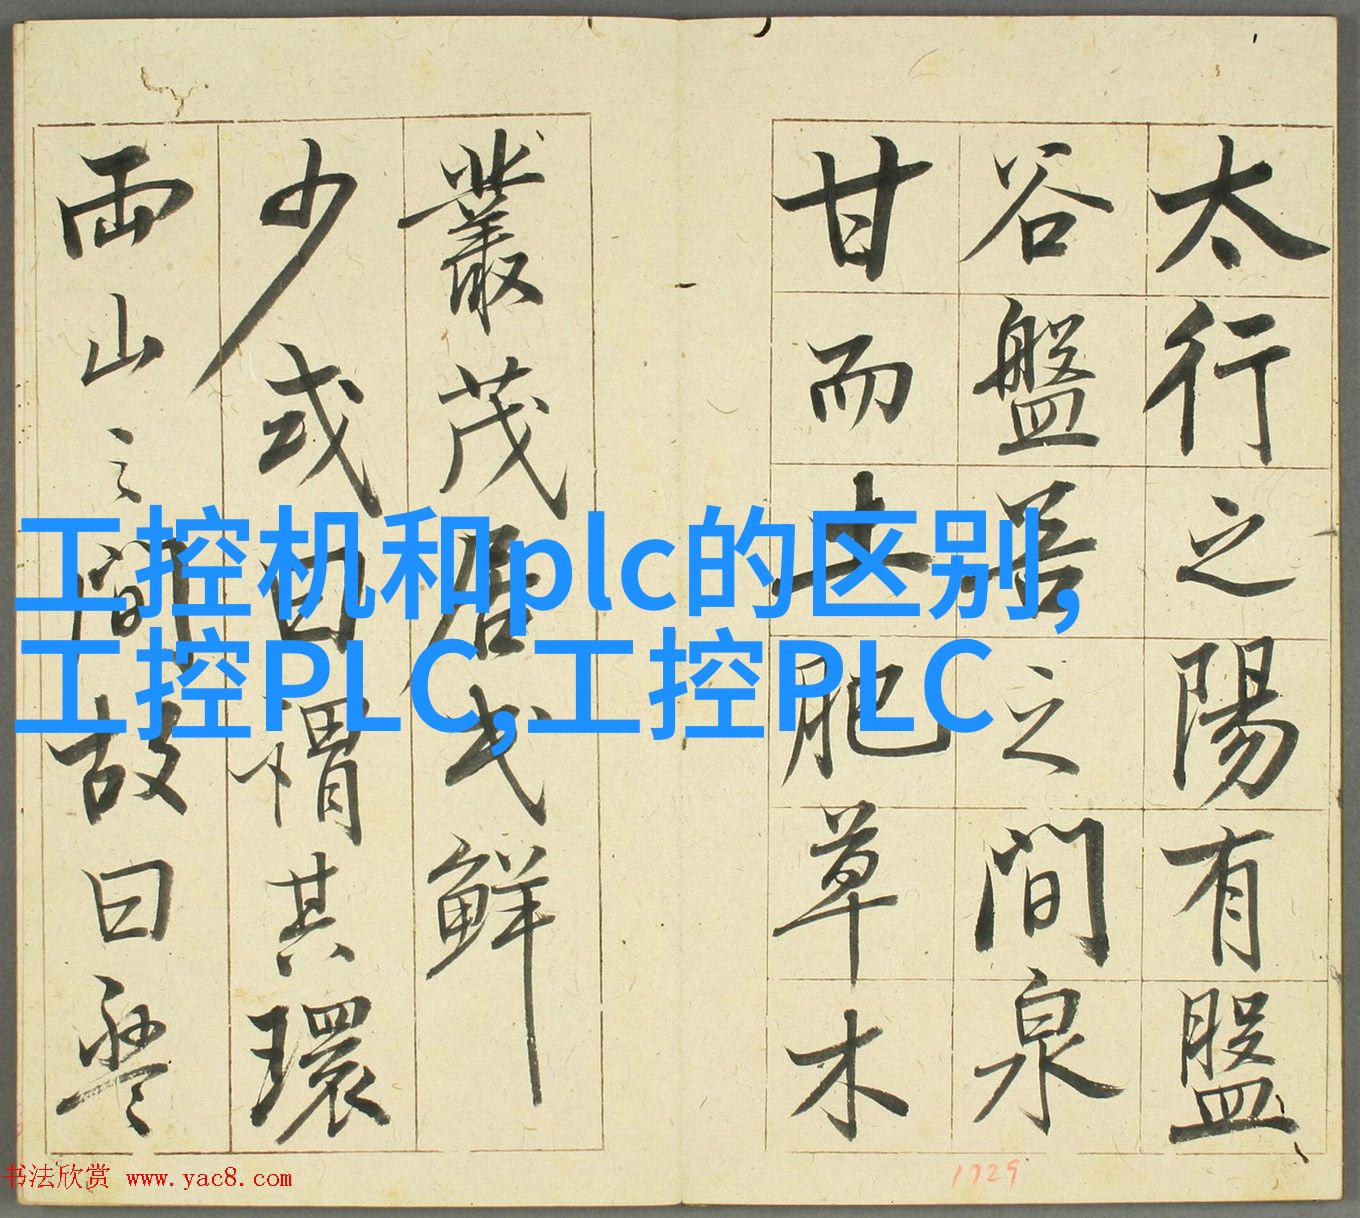 太行之陽有盤
谷盤谷之間泉
甘而土肥草木
叢茂居民鮮
少或曰謂其環
兩山之間故曰盤
工控机和plc的区别,
工控PLC,工控PLC
书法欣赏 www.yac8.com
1729